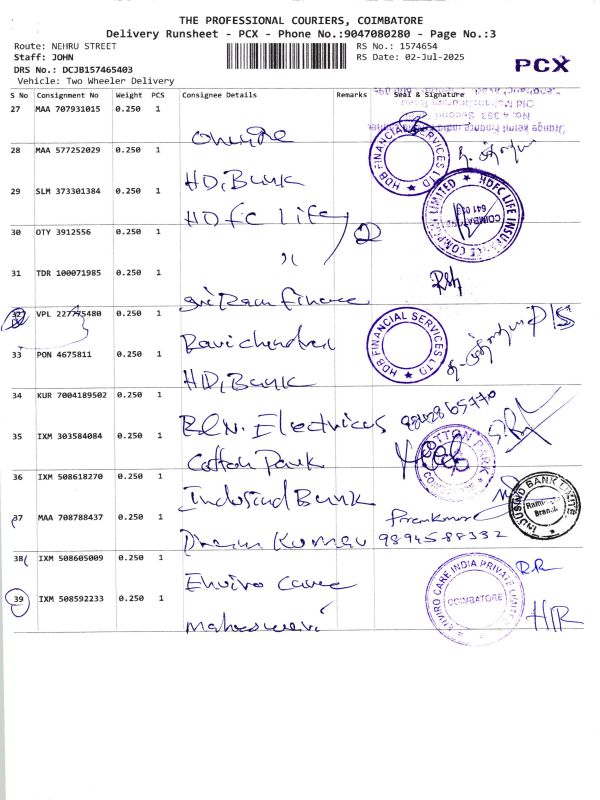 THE PROFESSIONAL COURIERS, COIMBATORE
Delivery Runsheet - PCX - Phone No.:9047080280 - Page No.:3
Route: NEHRU STREET
Staff: JOHN
DRS No.: DCJB157465403
Vehicle: Two Wheeler Delivery
RS No.: 1574654
RS Date: 02-Jul-2025
PCX
S No Consignment No Weight PCS Consignee Details Remarks Seal & Signature
27 MAA 707931015 0.250 1
No: 4 393 
28 MAA 577252029 0.250 1
HDB FINANCIAL SERVICES LTD
29 SLM 373301384 0.250 1
HD,Bank
HDFC Life
HDFC LIFE INSURANCE COMPANY LIMITED
COIMBATORE
30 OTY 3912556 0.250 1
"
31 TDR 100071985 0.250 1
Sri Ram Finance
32 VPL 227775480 0.250 1
Ravichandran
HDB FINANCIAL SERVICES LTD
33 PON 4675811 0.250 1
HD,Bank
34 KUR 7004189502 0.250 1
Electrices
35 IXM 303584084 0.250 1
Cotton Park
COTTON PARK
36 IXM 508618270 0.250 1
Indusind Bank
INDUSIND BANK LIMITED
Branch
37 MAA 708788437 0.250 1
Premkumar
Prem Kumar 9894588332
38 IXM 508605009 0.250 1
Enviro Care
ENVIRO CARE INDIA PRIVATE LIMITED
COIMBATORE
R.R
39 IXM 508592233 0.250 1
Maheswari